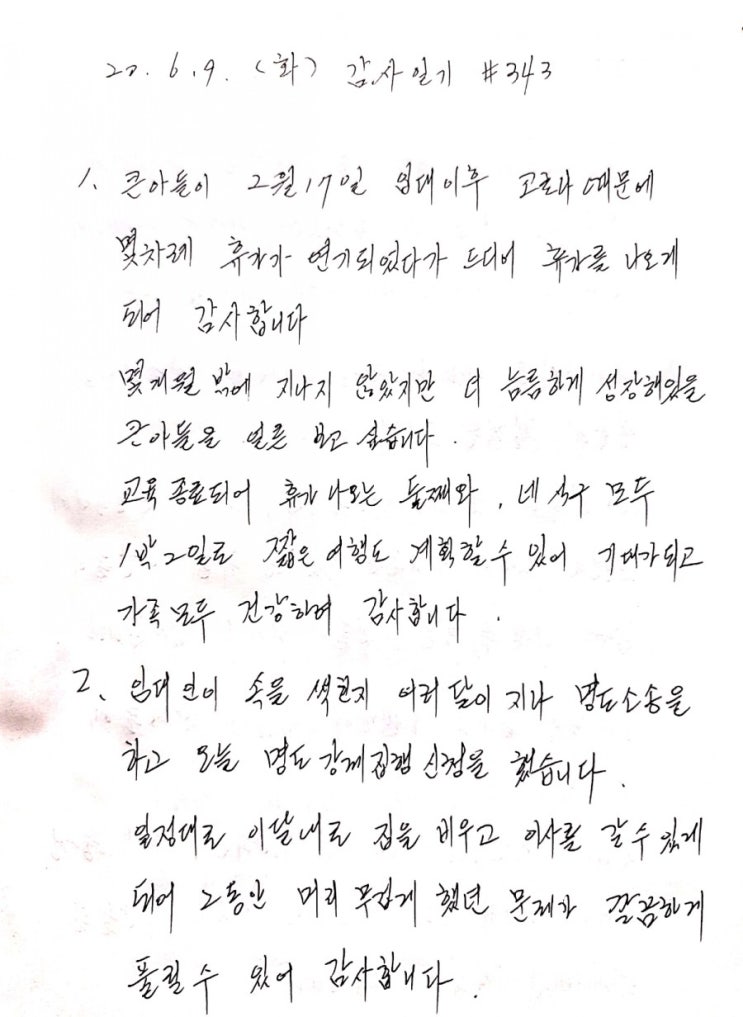 20. 6. 9. (화) 감사일기 #343
1. 큰아들이 2월 17일 입대이후 코로나 때문에
몇차례 휴가가 연기되었다가 드디어 휴가를 나오게
되어 감사합니다
몇개월 밖에 지나지 않았지만 더 늠름하게 성장해있을
큰아들을 얼른 보고 싶습니다.
교육 종료되어 휴가 나오는 둘째와, 네 식구 모두
1박 2일로 짧은 여행도 계획할 수 있어 기대가 되고
가족 모두 건강하여 감사합니다.
2. 임대인이 속을 썩힌지 여러 달이 지나 명도소송을
하고 오늘 명도 강제집행 신청을 했습니다.
일정대로 이달내로 집을 비우고 이사를 갈 수 있게
되어 그동안 머리 무겁게 했던 문제가 깔끔하게
풀릴 수 있어 감사합니다.